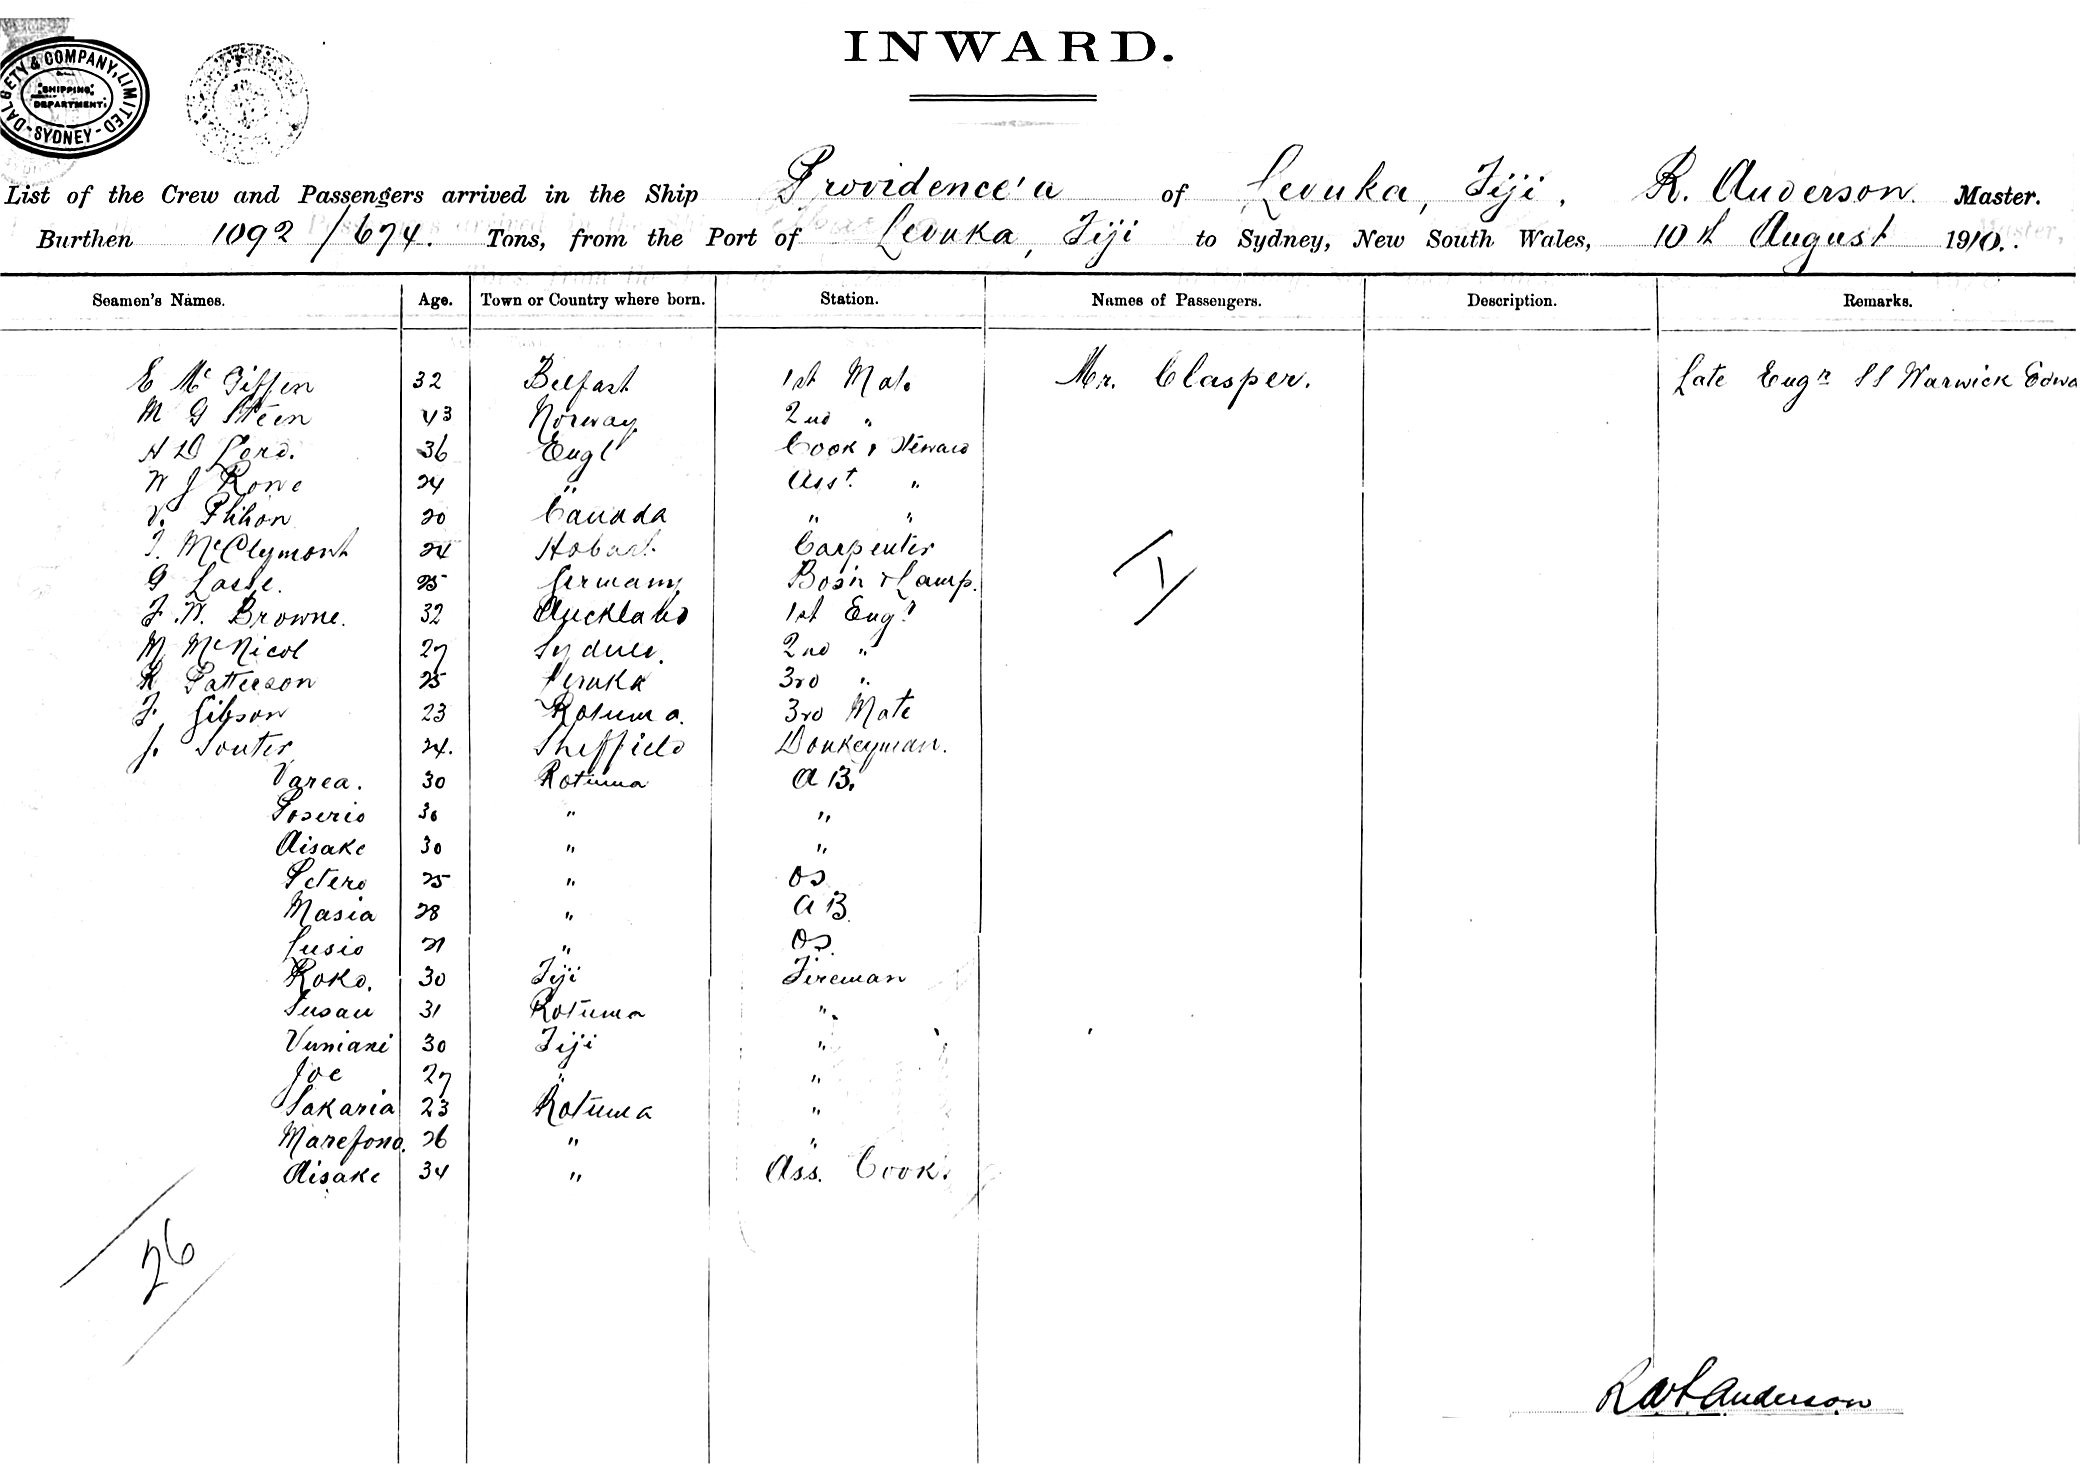 DALGETY & COMPANY, LIMITED
SHIPPING DEPARTMENT
SYDNEY
INWARD.
List of the Crew and Passengers arrived in the Ship Providence'a of Levuka, Fiji, R. Anderson. Master.
Burthen 1092/674. Tons, from the Port of Levuka, Fiji to Sydney, New South Wales, 10th August 1910.
Seamen's Names. Age. Town or Country where born. Station. Names of Passengers. Description. Remarks.
E McGiffen 32 Belfast 1st Mate Mr. Clasper. Late Engr SS Warwick
M G Steen 43 Norway 2nd "
H D Lord. 36 Engl Cook & Steward
W J Rowe 24 " Asst. "
V. 20 Canada " "
T. McClymont 24 Hobart Carpenter
G 25 Germany Bos'n & Lamp.
F. W. Browne. 32 Auckland 1st Engr
M McNicol 27 Sydney. 2nd "
R Patterson 25 Levuka 3rd "
F. Gibson 23 Rotuma. 3rd Mate
J. Souter 24. Sheffield Donkeyman.
Varea. 30 Rotuma A B.
Poserio 30 " "
Aisake 30 " "
Petero 25 " OS
Masia 28 " A B.
Lusio 21 " OS.
Roko. 30 Fiji Fireman
Susau 31 Rotuma "
Vuniani 30 Fiji "
Joe 27 " "
Sakaria 23 Rotuma "
Marefono. 26 " "
Aisake 34 " Ass. Cook.
1
26
Anderson